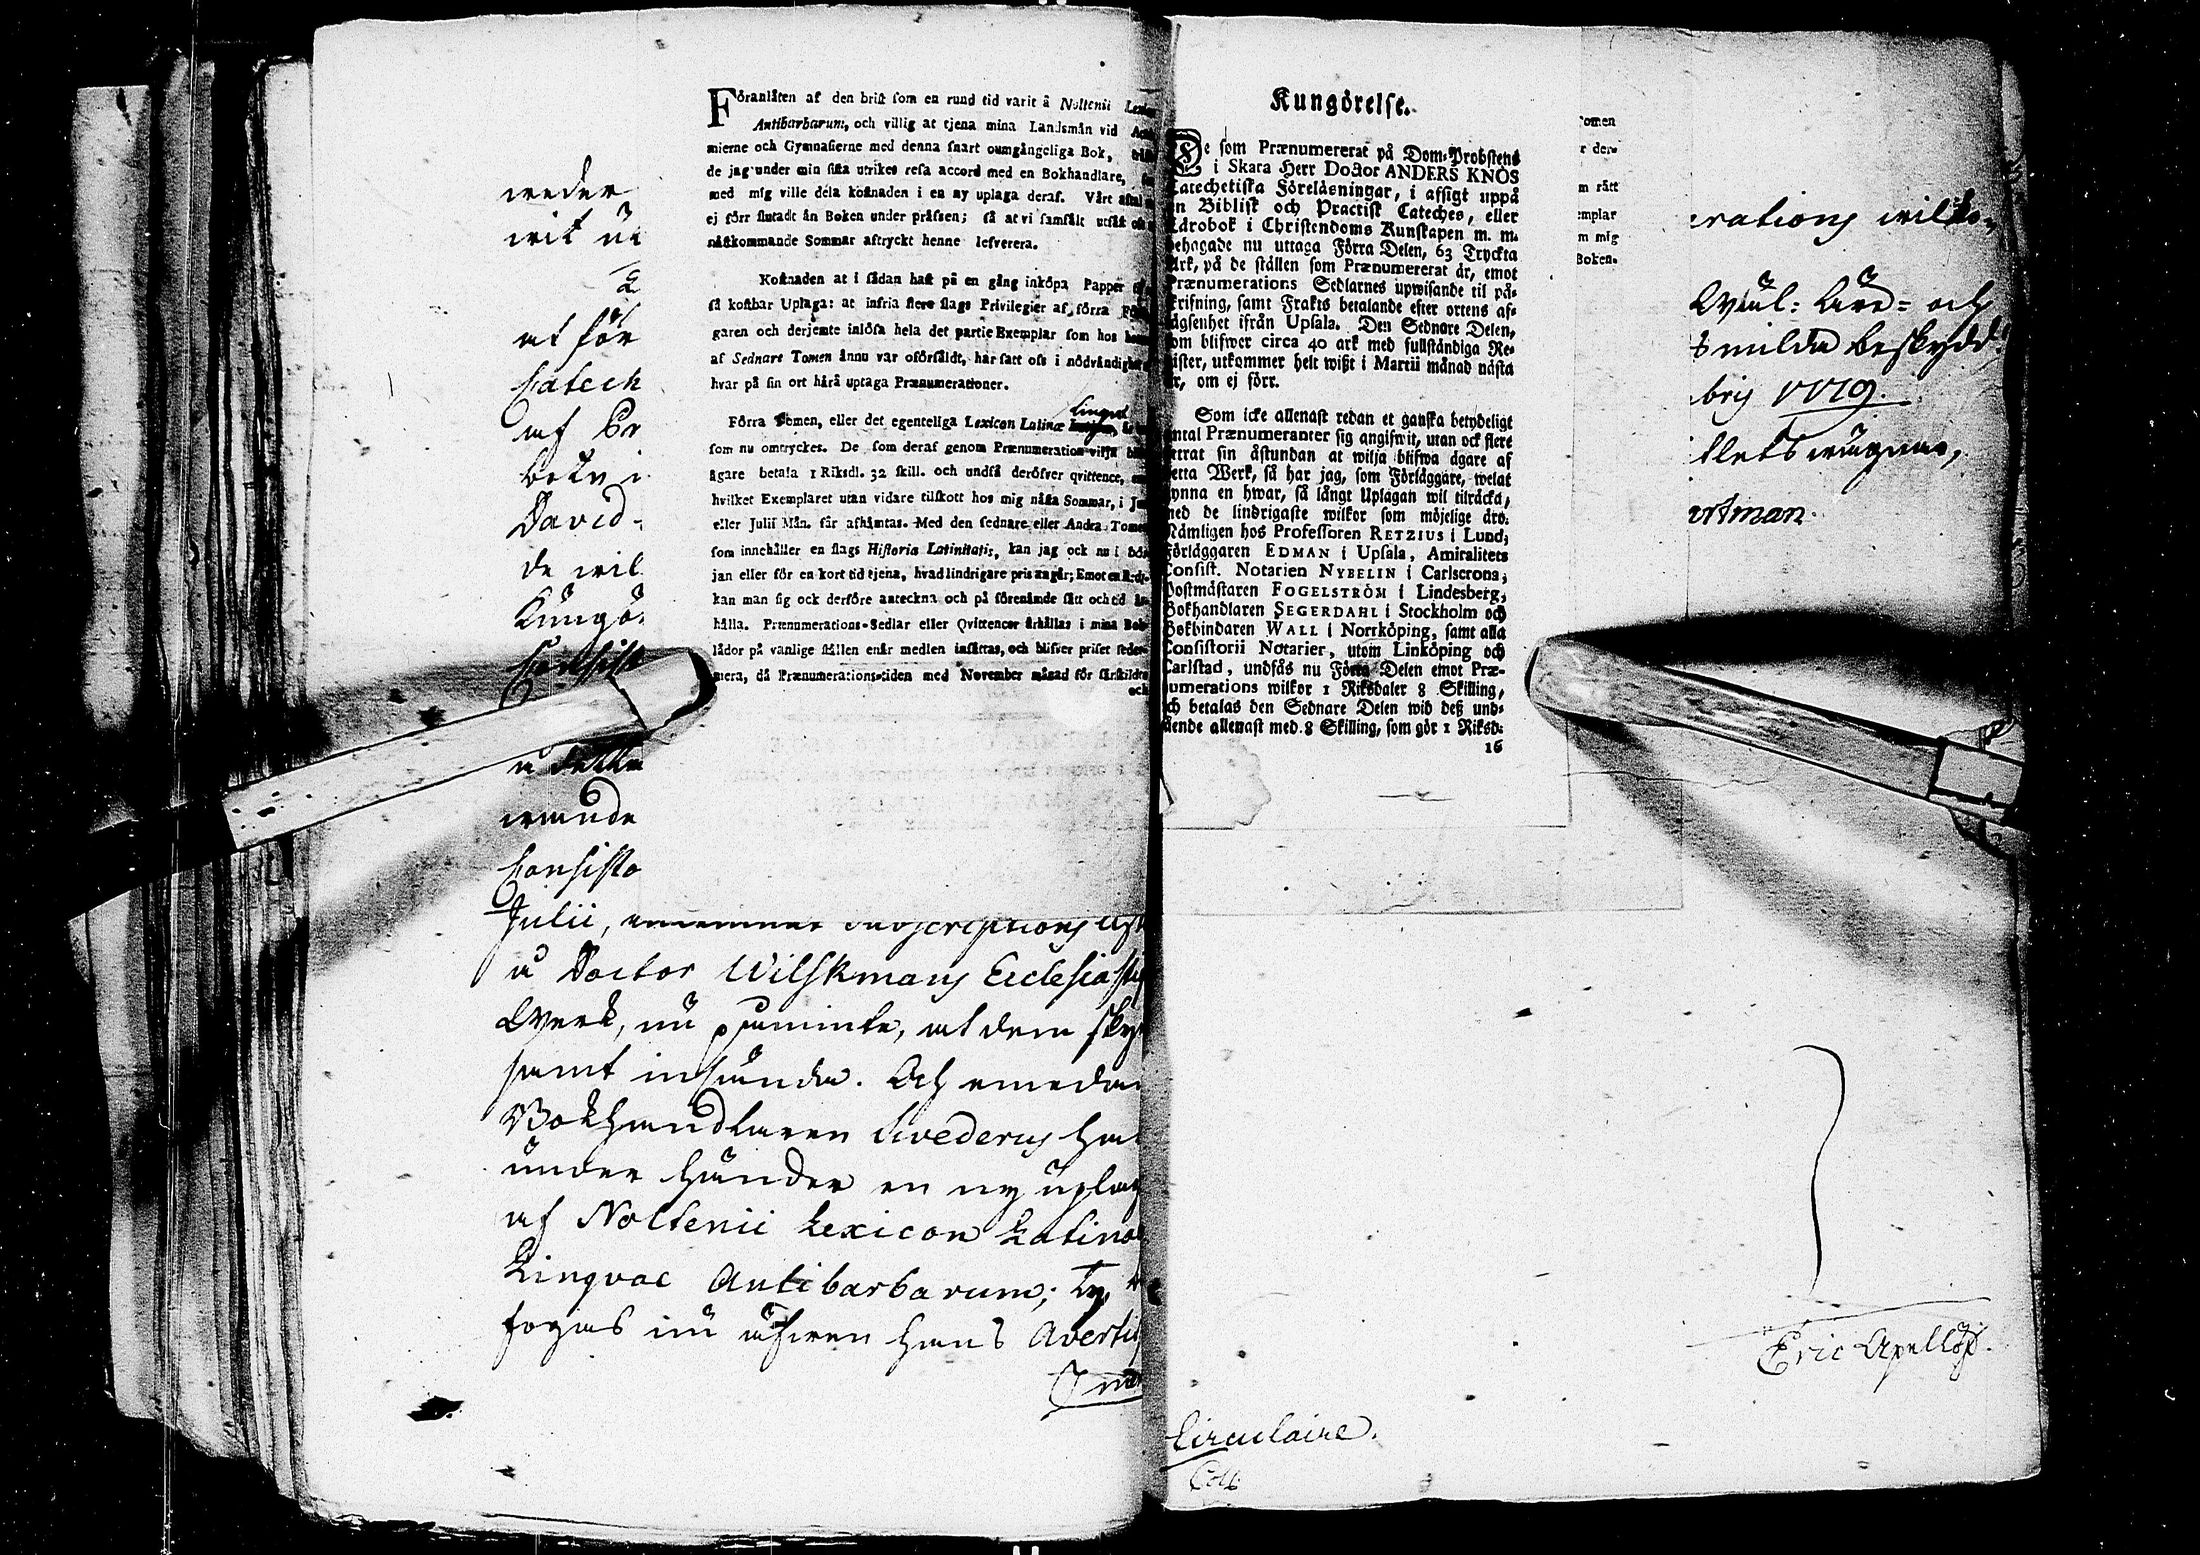 Föranlåten af den brist som en rund tid varit å Noltenii
Antibarbarum, och villig at tjena mina Landsmän vid
mierne och Gymnasierne med denna snart oumgängeliga Bok,
de jag under min sista utrikes resa accord med en Bokhandlare,
med mig ville dela kostnaden i en ny uplaga deraf. Vårt aftal
ej förr slutadt än Boken under prässen; så at vi samfält utfäst oss
nästkommande Sommar aftryckt henne lefverera.
Kostnaden at i sådan hast på en gång inköpa Papper
så kostbar Uplaga: at infria flere slags Privilegier af förra
garen och derjemte inlösa hela det partie Exemplar som hos
af Sednare Tomen ännu var oförsåldt, har satt oss i nödvändighet
hvar på sin ort härå uptaga Prænumerationer.
lingvæ
Förra Tomen, eller det egenteliga Lexicon Latinæ
som nu omtryckes. De som deraf genom Prænumeration vilja
ägare betala 1 Riksdl. 32 skill. och undfå deröfver qvittence,
hvilket Exemplaret utan vidare tilskott hos mig nästa Sommar, i
eller Julii Mån. får afhämtas. Med den sednare eller Andra Tomen
som innehåller en slags Historia Latinitatis, kan jag ock nu i bör-
jan eller för en kort tid tjena, hvad lindrigare pris angår; Emot en
kan man sig ock derföre anteckna och på förenämde sätt och tid
hålla. Prænumerations-Sedlar eller Qvittencer erhållas i mina Bok-
lådor på vanlige ställen enär medlen insättas, och blifver priset seder-
mera, då Prænumerations-tiden med November månad för särskildta
och
weder
wit
at för
Catech
af
David-
de wil
Kungö-
Consisto
a detta
Consisto
Julii, Subscriptions
å Doctor Wilskmans Ecclesiastiq
Werk, nu påminte, at dem
samt insända. Och emedan
Bokhandlaren Swederus har
under händer en ny uplag
af Noltenii Lexicon Latinæ
Lingvae Antibarbarum; Ty
fogas nu äfwen hans Avertis
Kungörelse.
De som Prænumererat på Dom-Probstens
i Skara Herr Doctor ANDERS KNÖS
Catechetiska Föreläsningar, i afsigt uppå
en Biblisk och Practisk Cateches, eller
Lärobok i Christendoms Kunskapen m. m.
behagade nu uttaga Förra Delen, 63 Tryckta
Ark, på de ställen som Prænumererat är, emot
Prænumerations Sedlarnes upwisande til på-
skrifning, samt Frakts betalande efter ortens af-
lägsenhet ifrån Upsala. Den Sednare Delen,
som blifwer circa 40 ark med fullständiga Re-
gister, utkommer helt wißt i Martii månad nästa
år, om ej förr.
Som icke allenast redan et ganska betydeligt
antal Prænumeranter sig angifwit, utan ock flere
yttrat sin åstundan at wilja blifwa ägare af
detta Werk, så har jag, som Förläggare, welat
gynna en hwar, så långt Uplagan wil tilräcka,
med de lindrigaste wilkor som möjelige äro:
Nämligen hos Professoren RETZIUS i Lund,
Förläggaren EDMAN i Upsala, Amiralitets
Consist. Notarien NYBELIN i Carlscrona,
Postmästaren FOGELSTRÖM i Lindesberg,
Bokhandlaren SEGERDAHL i Stockholm och
Bokbindaren WALL i Norrköping, samt alla
Consistorii Notarier, utom Linköping och
Carlstad, undfås nu Förra Delen emot Præ-
numerations wilkor 1 Riksdaler 8 Skilling,
och betalas den Sednare Delen wid deß und-
fående allenast med 8 Skilling, som gör 1 Riksd:
16
Tomen
r der-
m rätt
emplar
m mig
Boken.
rations wilko-
Wäl: Ärd= och
s milda beskydd
bris 1779.
rtman.
Eric
Circulaire.